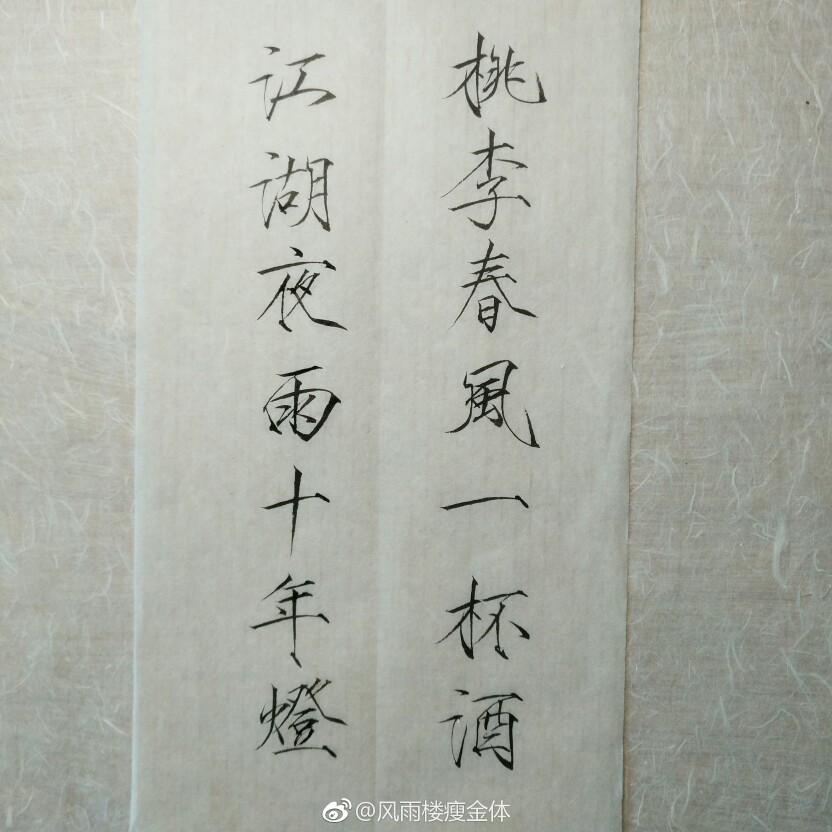 桃李春風一杯酒
江湖夜雨十年燈
@风雨楼瘦金体